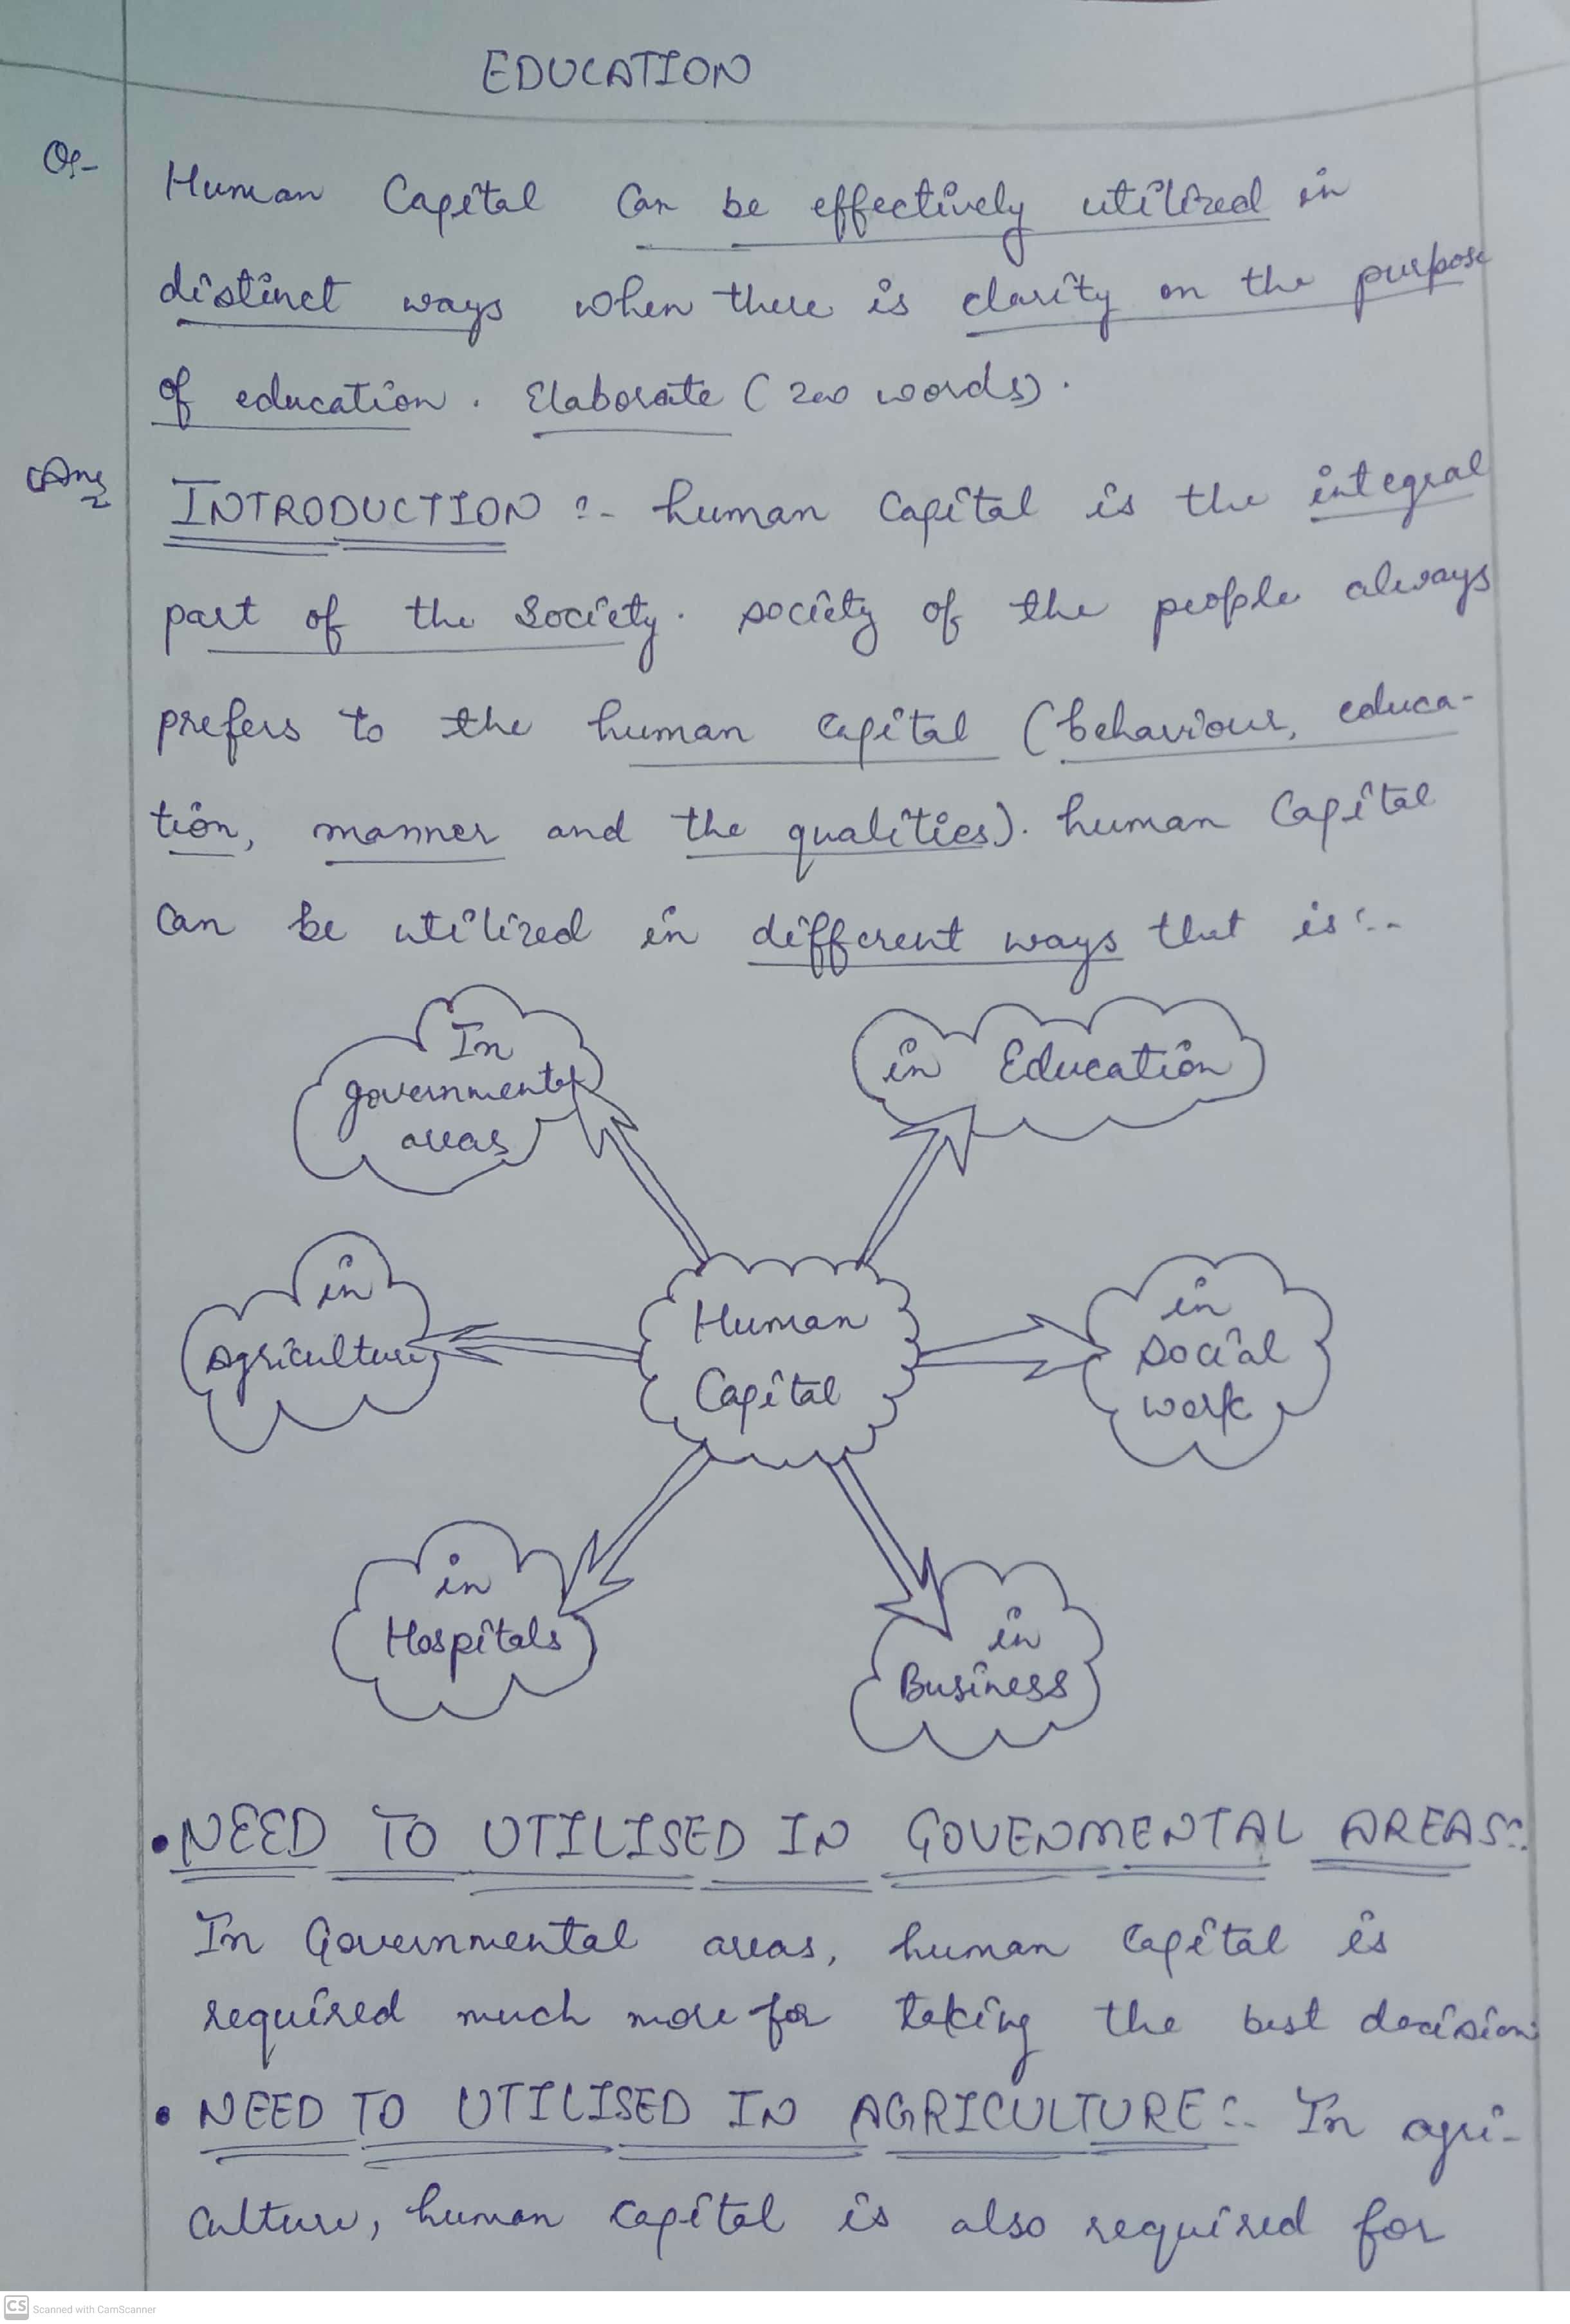 EDUCATION
Q:- Human Capital can be effectively utilized in
distinct ways when there is clarity on the purpose
of education. Elaborate (200 words).
Ans INTRODUCTION :- human Capital is the integral
part of the Society. society of the people always
prefers to the human capital (behaviour, educa-
tion, manner and the qualities). human Capital
Can be utilized in different ways that is :-
In
governmental
areas
in Education
in
agriculture
Human
Capital
in
social
work
in
Hospitals
in
Business
• NEED TO UTILISED IN GOVENMENTAL AREAS:-
In Governmental areas, human capital is
required much more for taking the best decision
• NEED TO UTILISED IN AGRICULTURE :- In agri-
culture, human capital is also required for
CS Scanned with CamScanner